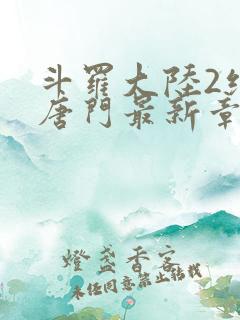 斗羅大陸2
唐門最新章
燈盞香客
未經同意禁止轉載